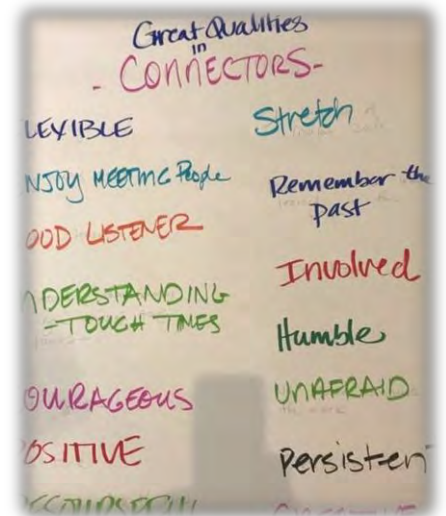 Great Qualities
in
- CONNECTORS-
LEXIBLE
NJOY MEETING People
OOD LISTENER
NDERSTANDING
-TOUGH TIMES
OURAGEOUS
OSITIVE
Stretch
Remember the
past
Involved
Humble
UNAFRAID
Persisten